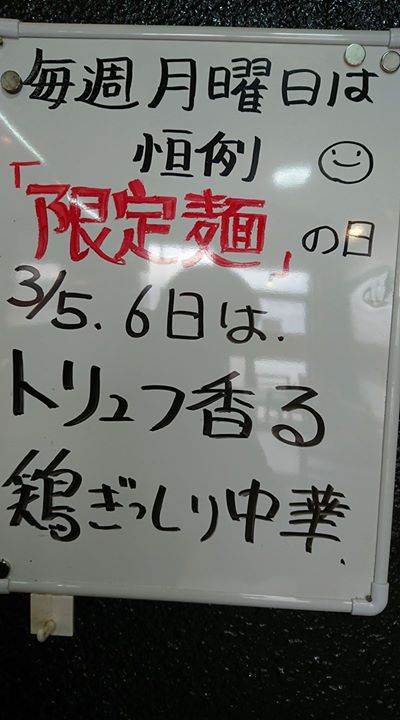 毎週月曜日は
恒例
「限定麺」の日
3/5.6日は.
トリュフ香る
鶏ぎっしり中華.